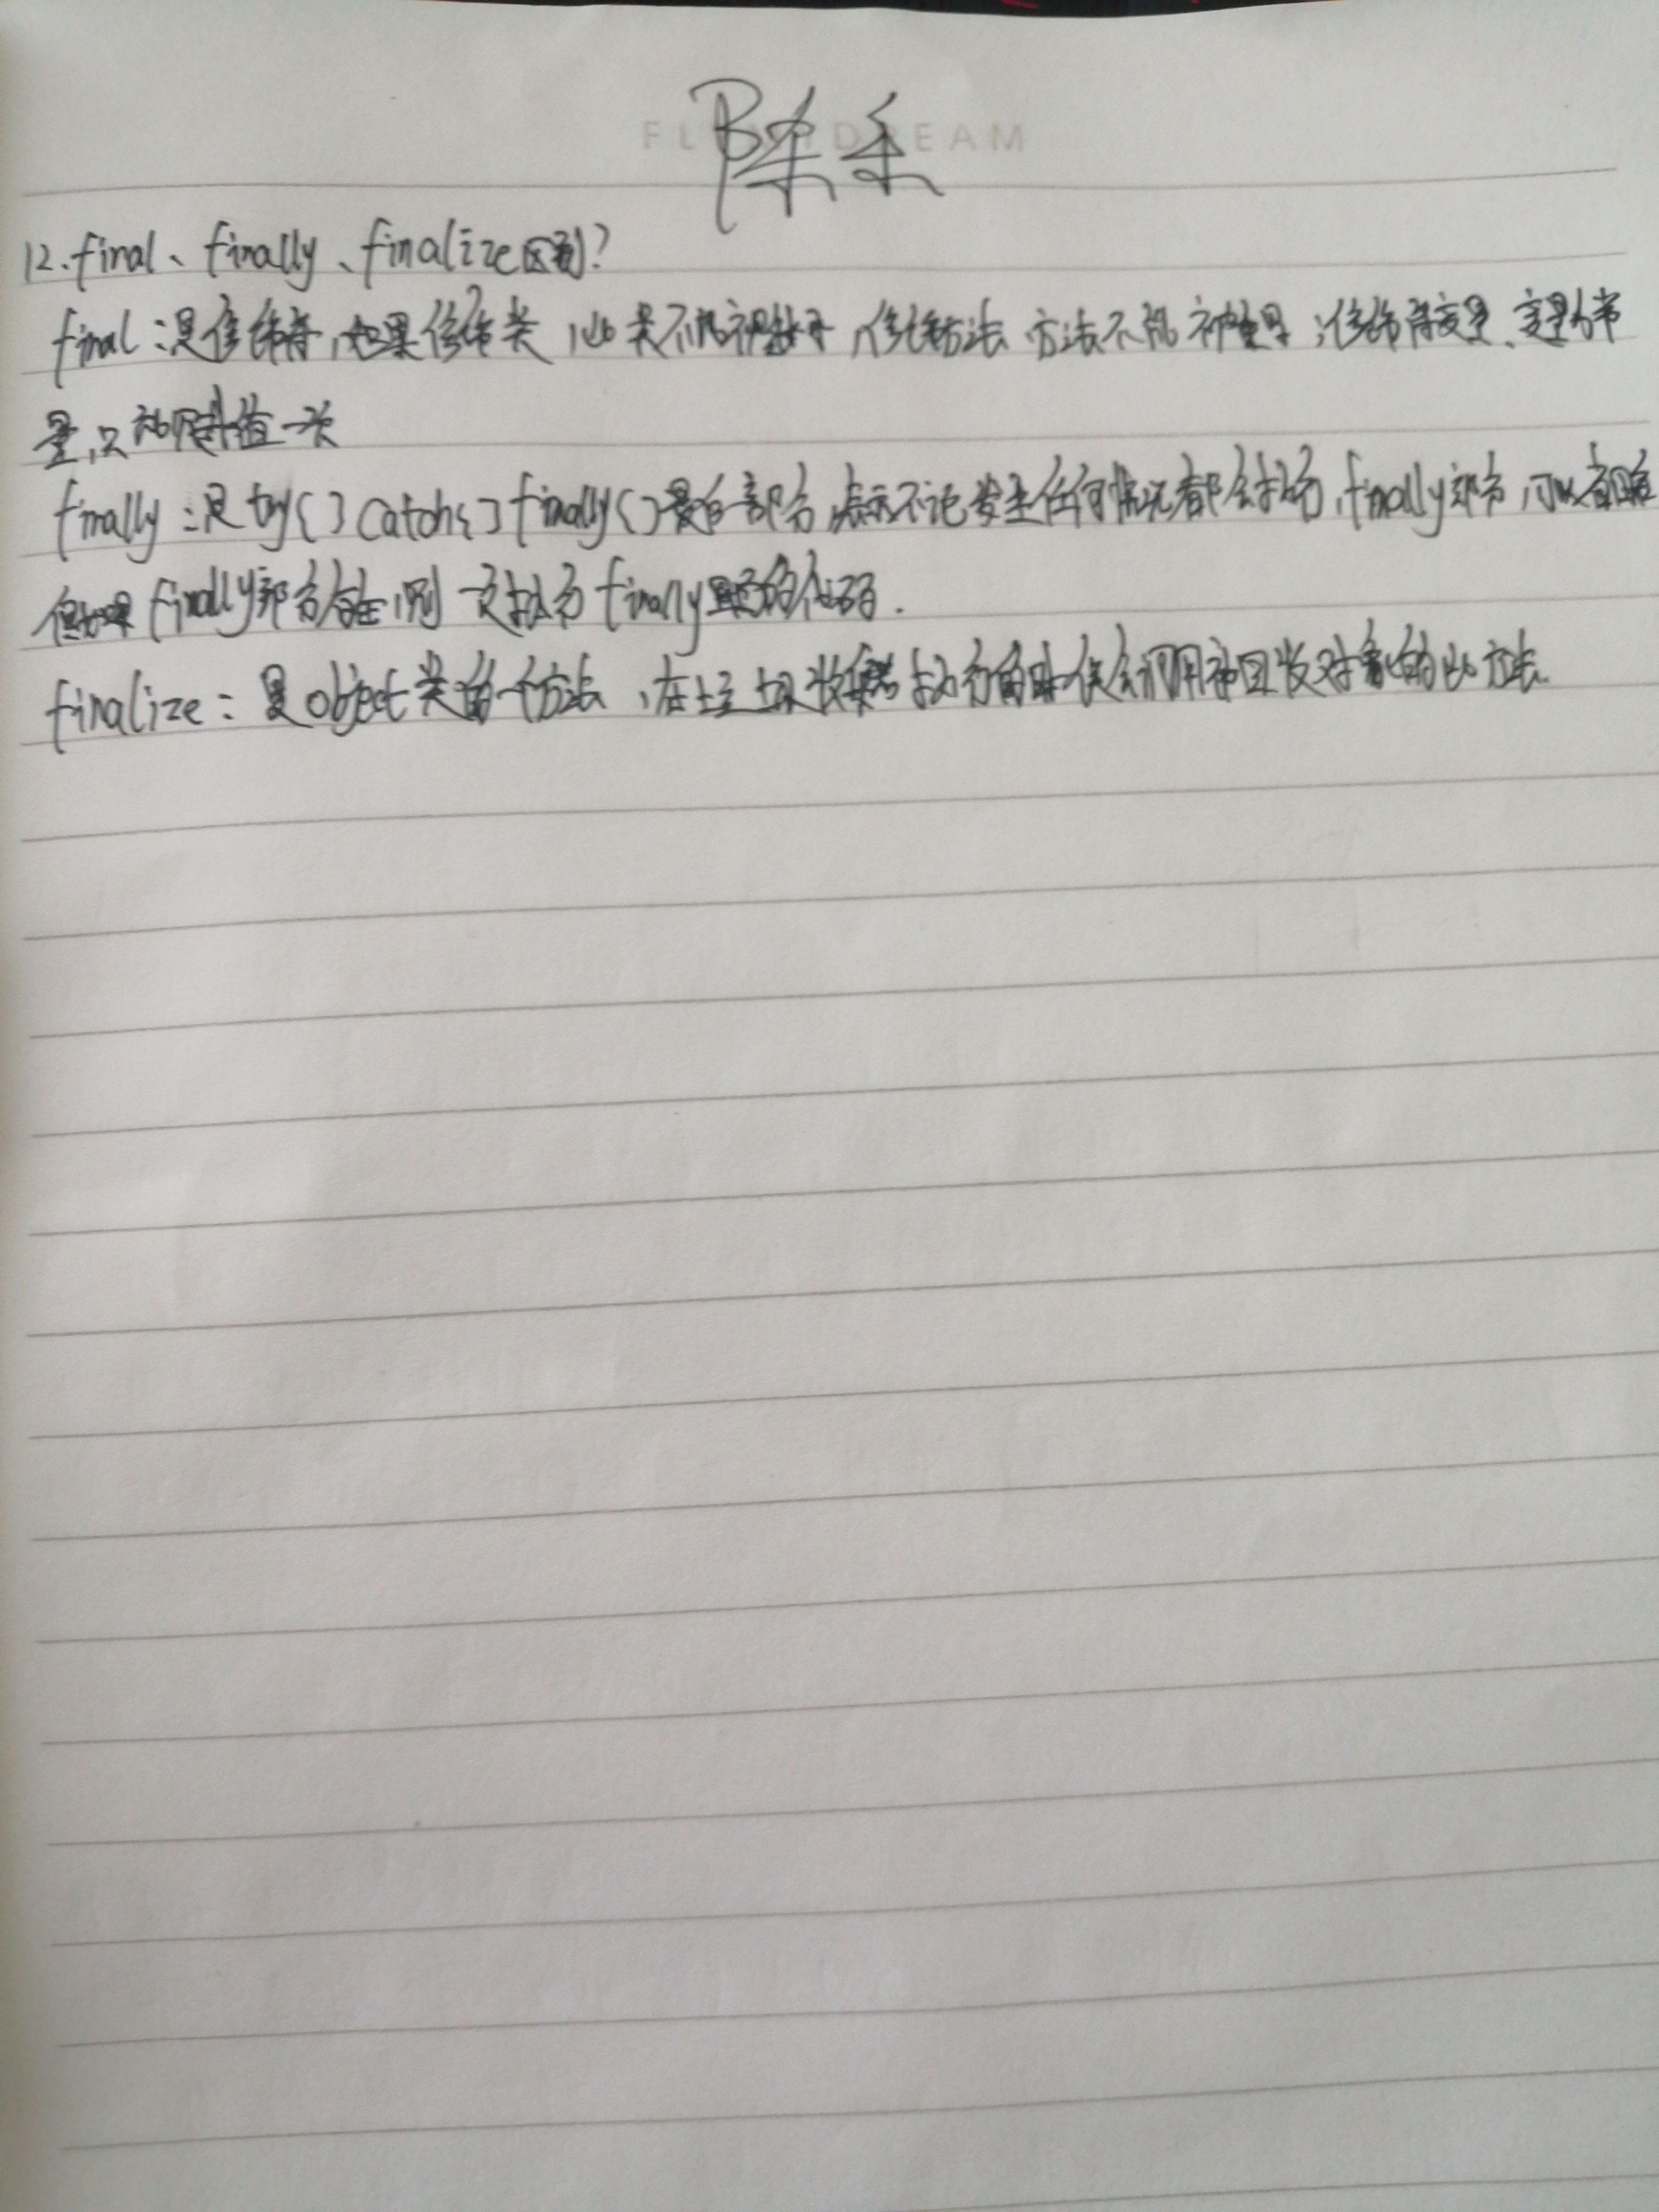 陈
12.final、finally、finalize区别?
final:是修饰符,如果修饰类,此类不能被继承,修饰方法 方法不能被重写;修饰符变量、变量为常
量,只能赋值一次
finally:是try{}catch{}finally{}最后一部分,表示不论发生任何情况都会执行,finally部分,可以省略
但如果finally部分存在,则一定执行finally里面的代码.
finalize:是object类的一个方法,在垃圾收集器执行的时候会调用被回收对象的此方法.